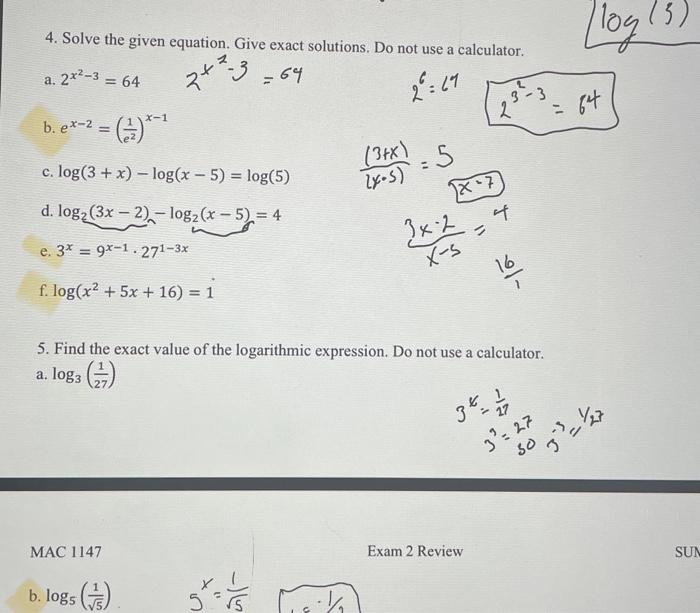 log(3)
4. Solve the given equation. Give exact solutions. Do not use a calculator.
a. 2^(x²−3) = 64
2^(x²-3) = 64
2^6 = 64
2^(3²-3) = 64
b. e^(x−2) = (1/e²)^(x−1)
c. log(3 + x) − log(x − 5) = log(5)
(3+x)/(x-5) = 5
x=7
d. log₂(3x − 2) − log₂(x − 5) = 4
3x-2/x-5 = 4
16/1
e. 3^x = 9^(x−1) · 27^(1−3x)
f. log(x² + 5x + 16) = 1
5. Find the exact value of the logarithmic expression. Do not use a calculator.
a. log₃ (1/27)
3^x = 1/27
3³ = 27
so 3^-3 = 1/27
MAC 1147 Exam 2 Review SUM
b. log₅ (1/√5)
5^x = 1/√5